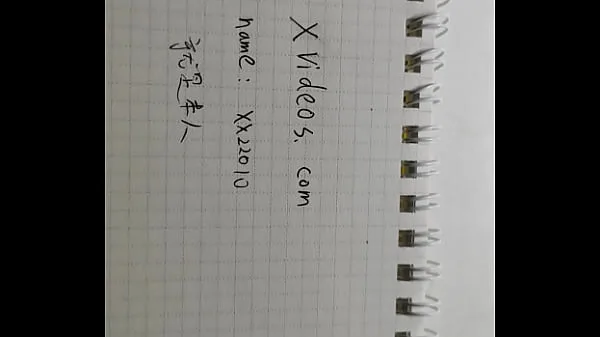 XVideos.com
name: XX22010
就是本人